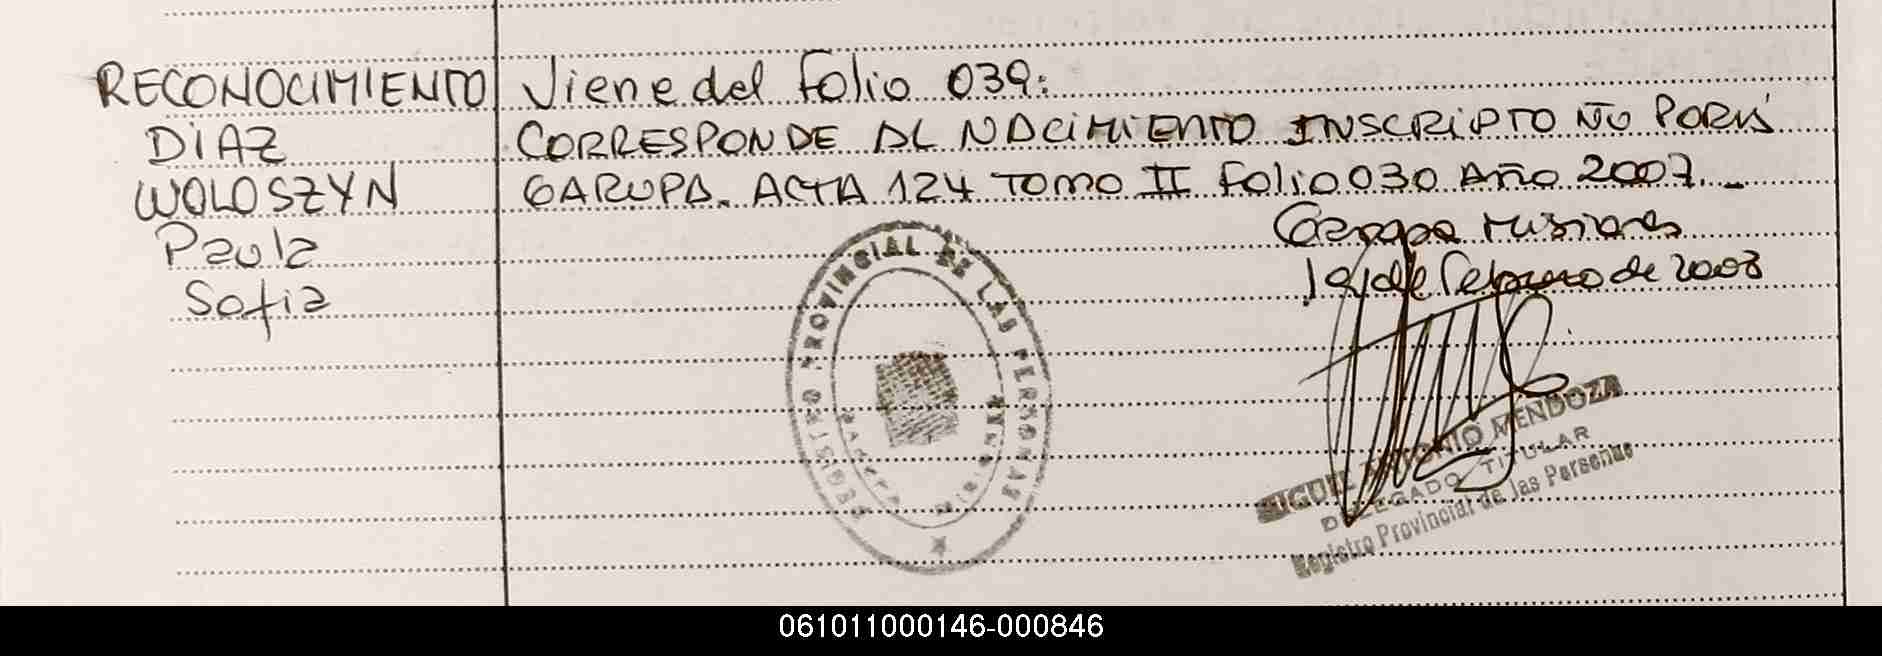 RECONOCIMIENTO Viene del folio 039:
DIAZ CORRESPONDE AL NACIMIENTO INSCRIPTO
WOLOSZYN GARUPA. ACTA 124 TOMO II Folio 030 Año 2007. _
Paula Garupa Misiones
Sofia de Febrero de 2008
REGISTRO PROVINCIAL DE LAS PERSONAS
MIGUEL ANTONIO MENDOZA
DELEGADO TITULAR
Registro Provincial de las Personas
061011000146-000846